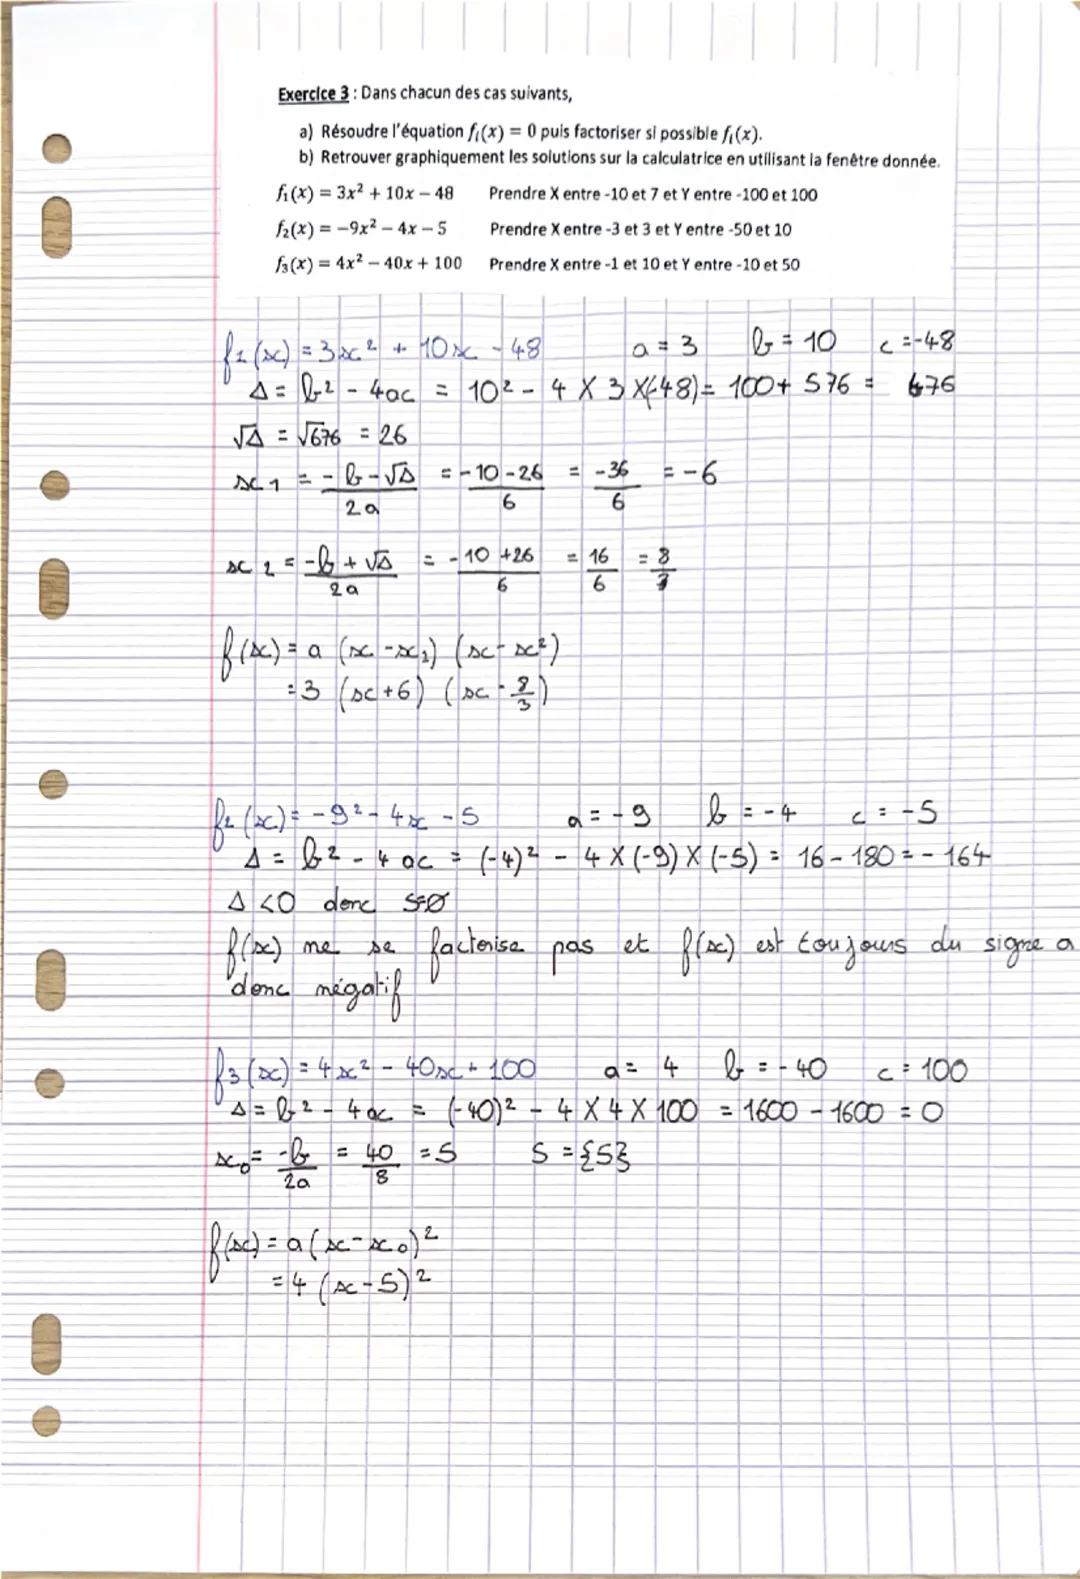 Exercice 3 : Dans chacun des cas suivants,
a) Résoudre l'équation fᵢ(x) = 0 puis factoriser si possible fᵢ(x).
b) Retrouver graphiquement les solutions sur la calculatrice en utilisant la fenêtre donnée.
f₁(x) = 3x² + 10x – 48 Prendre X entre -10 et 7 et Y entre -100 et 100
f₂(x) = −9x² – 4x – 5 Prendre X entre -3 et 3 et Y entre -50 et 10
f₃(x) = 4x² – 40x + 100 Prendre X entre -1 et 10 et Y entre -10 et 50
f₁(x) = 3x² + 10x - 48 a = 3 b = 10 c = -48
Δ = b² - 4ac = 10² - 4 × 3 ×(-48) = 100 + 576 = 676
√Δ = √676 = 26
x₁ = (-b-√Δ)/2a = (-10-26)/6 = -36/6 = -6
x₂ = (-b+√Δ)/2a = (-10+26)/6 = 16/6 = 8/3
f(x) = a (x-x₁) (x-x²)
= 3 (x+6) (x - 8/3)
f₂(x) = -9² - 4x - 5 a = -9 b = -4 c = -5
Δ = b² - 4ac = (-4)² - 4 × (-9) × (-5) = 16 - 180 = - 164
Δ <0 donc S=Ø
f(x) ne se factorise pas et f(x) est toujours du signe a
donc négatif
f₃(x) = 4x² - 40x + 100 a = 4 b = -40 c = 100
Δ = b² - 4ac = (-40)² - 4 × 4 × 100 = 1600 - 1600 = 0
x₀ = -b/2a = 40/8 = 5 S = {5}
f(x) = a(x-x₀)²
= 4 (x-5)²